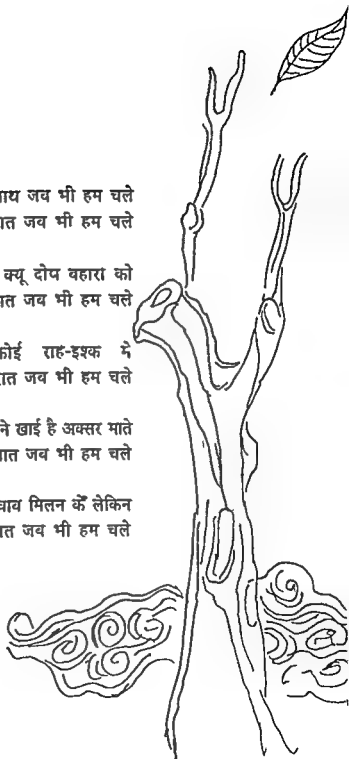 जब भी हम चले
जब भी हम चले
क्यू दोष बहारा को
जब भी हम चले
कोई राह-इश्क मे
जब भी हम चले
ने खाई है अक्सर माते
जब भी हम चले
मिलन के लेकिन
जब भी हम चले